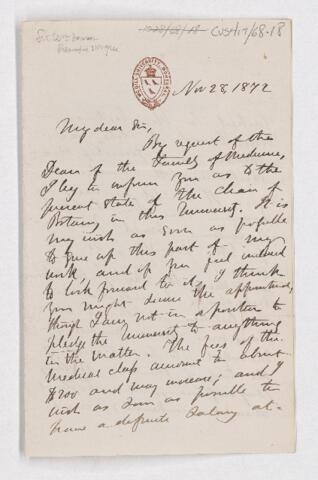 Sir Wm Dawson
1528/68/18
CUSH/17/68-18
McGILL UNIVERSITY, MONTREAL
Nov 28, 1872
My dear Sir,
By request of the
Dean of the Faculty of Medicine,
I beg to inform you as to the
present state of the Chair of
Botany in this University. It is
my wish as soon as possible
to give up this part of my
work and if you feel inclined
to look forward to it, I think
you might desire the appointment,
though I am not in a position to
pledge the University to anything
in the matter. The fees of the
Medical class amount to about
$200 and may increase, and I
wish as soon as possible to
have a definite salary at-